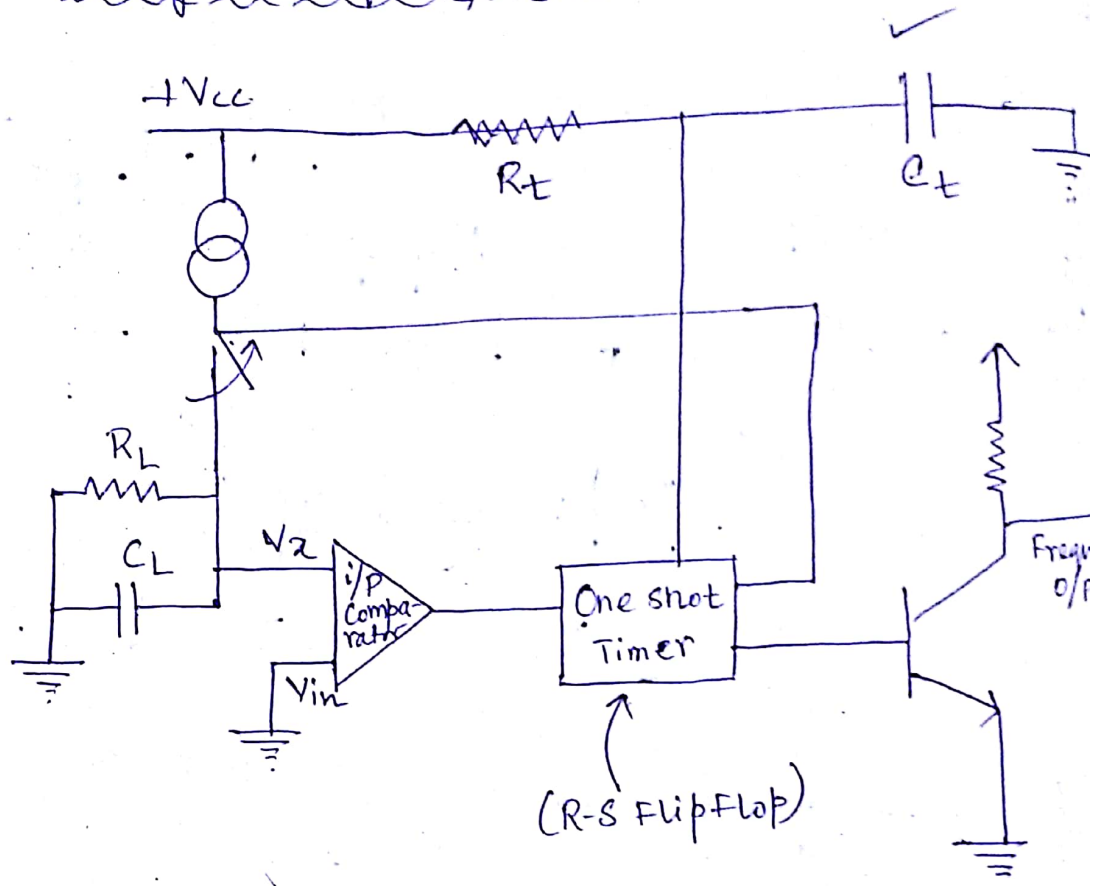 +Vcc
Rt
Ct
RL
CL
Vx
i/P
Compa-
rator
Vin
One shot
Timer
O/P
(R-S FlipFlop)